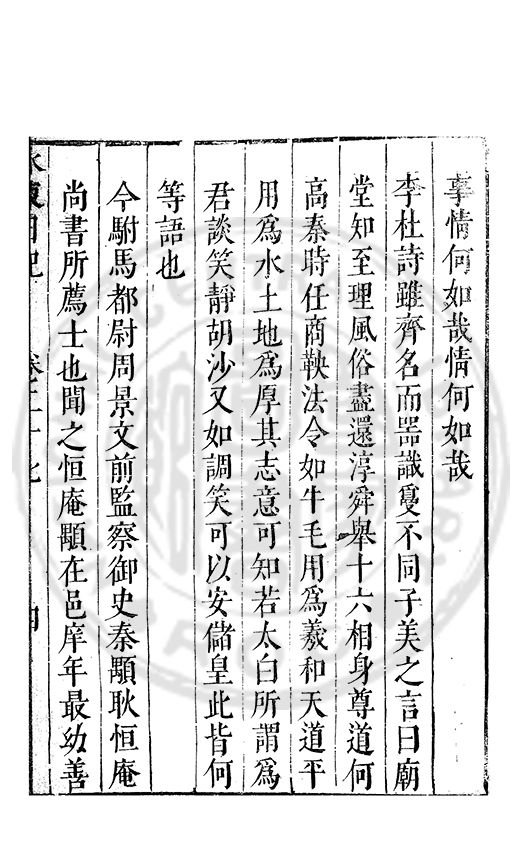 事情何如哉情何如哉
李杜詩雖齊名而器識夐不同子美之言曰廟
堂知至理風俗盡還淳舜舉十六相身尊道何
高秦時任商鞅法令如牛毛用為羲和天道平
用為水土地為厚其志意可知若太白所謂為
君談笑靜胡沙又如調笑可以安儲皇此皆何
等語也
今駙馬都尉周景文前監察御史秦顒耿恒庵
尚書所薦士也聞之恒庵顒在邑庠年最幼善
水東日記 卷二十七 四